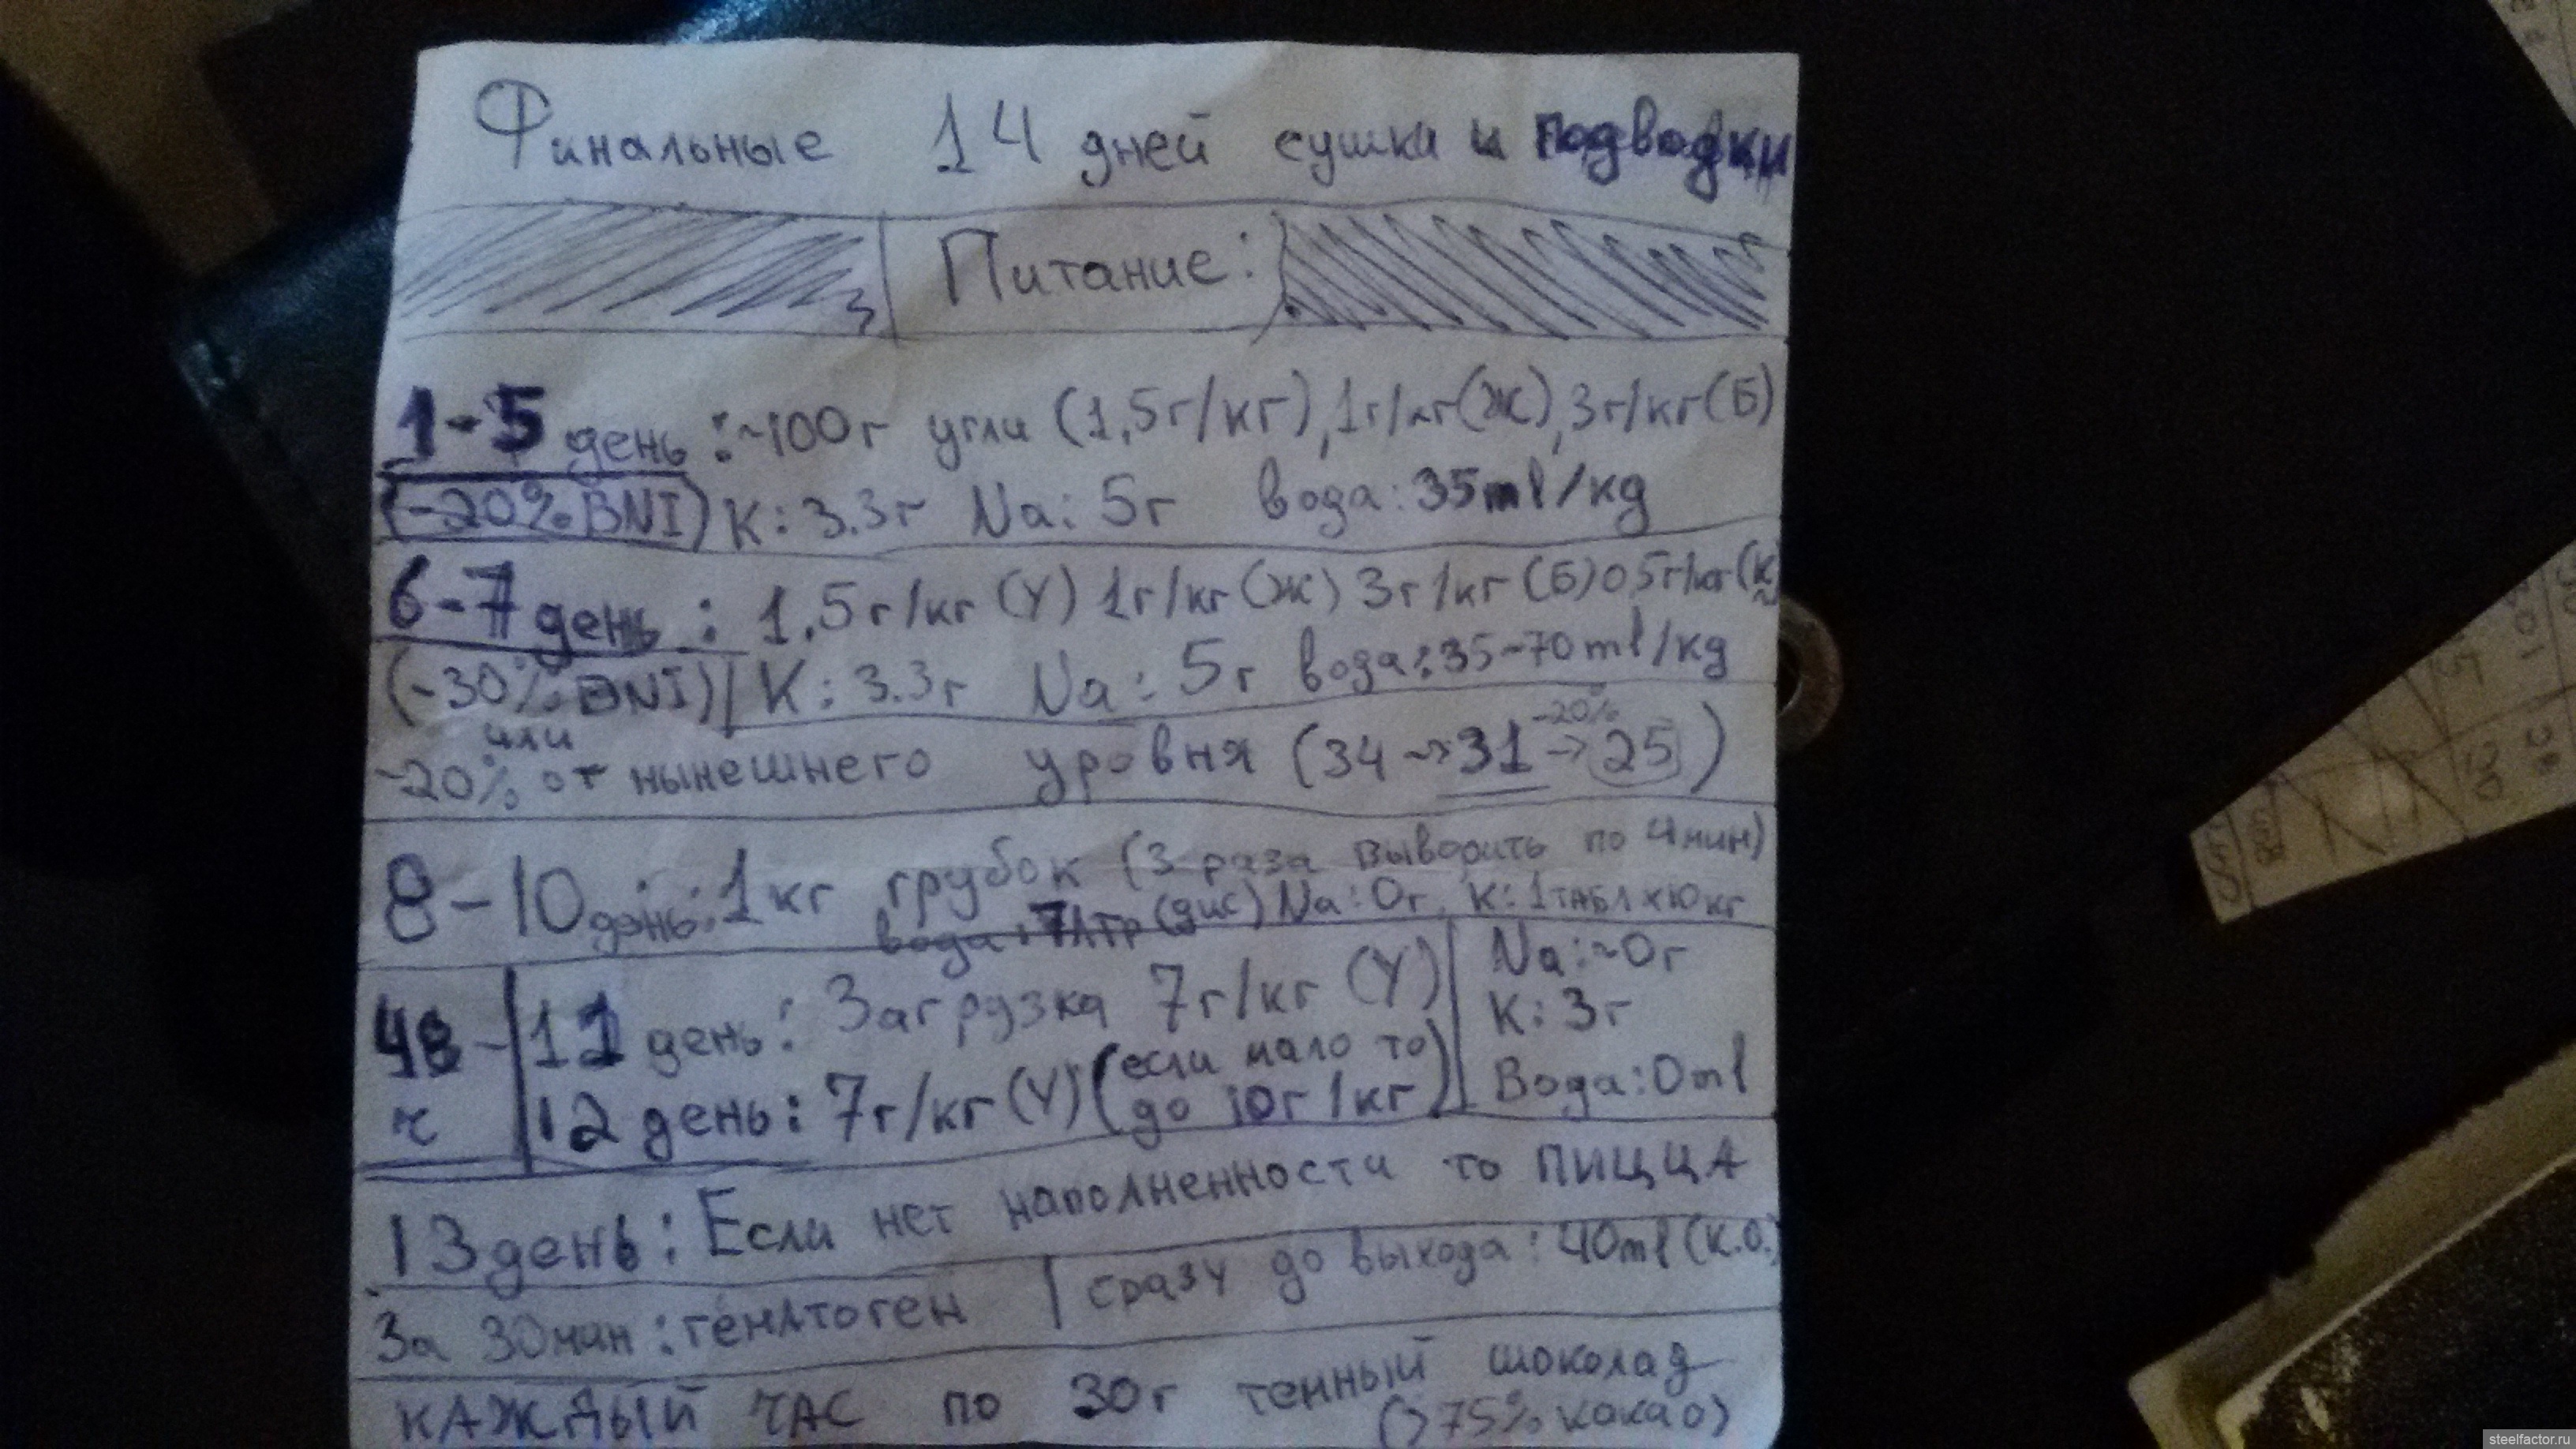 Финальные 14 дней сушки и подводки
Питание:
1-5 день: ~100г угли (1,5г/кг), 1г/кг(Ж), 3г/кг(Б)
(-20% BNI) К: 3.3г Na: 5г вода: 35ml/kg
6-7 день: 1,5г/кг (У) 1г/кг (Ж) 3г/кг (Б) 0,5г/кг (К
(-30% BNI) К: 3.3г Na: 5г вода: 35-70ml/kg
или
-20% от нынешнего уровня (34 → 31 -20% → 25)
8-10 день: 1кг грубок (3 раза выворить по 4мин)
вода: 7лтр (дис) Na: 0г, К: 1табл x10кг
48 ч
11 день: Загрузка 7г/кг (У)
12 день: 7г/кг (У) (если мало то до 10г/кг)
Na: ~0г
К: 3г
Вода: 0ml
13 день: Если нет наполненности то ПИЦЦА
За 30мин: гематоген сразу до выхода: 40ml (К.О.)
КАЖДЫЙ ЧАС по 30г темный шоколад
(>75% какао)
steelfactor.ru